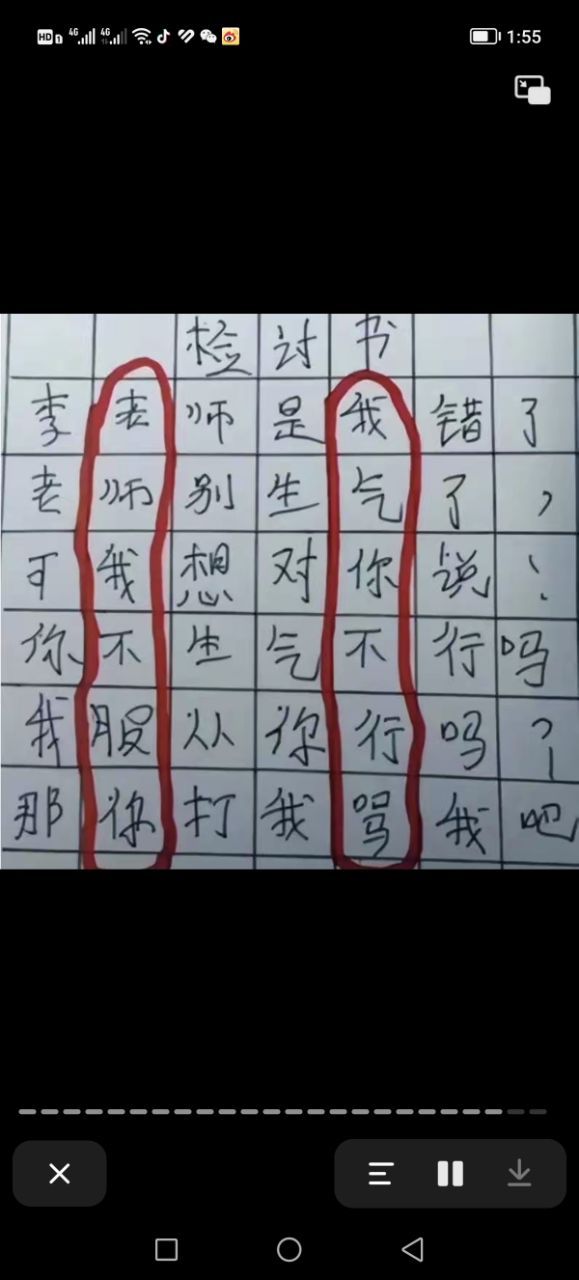 HD 1 4G 4G 1:55
检讨书
李老师是我错了
老师别生气了，
可我想对你说：
你不生气不行吗
我服从你行吗？
那你打我骂我吧